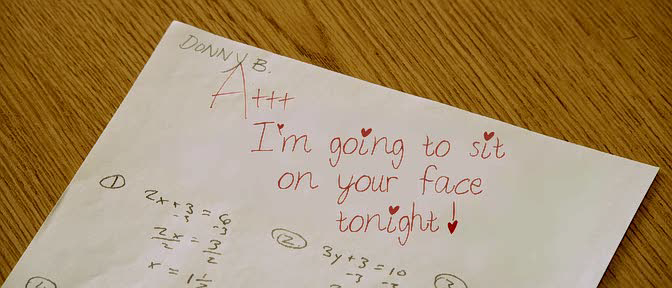 DONNY B.
A+++
I'm going to sit
on your face
tonight!
① 2x+3=6
-3 -3
2x = 3
2 2
x = 1 1/2
② 3y+3=10
-3 -3
③
④